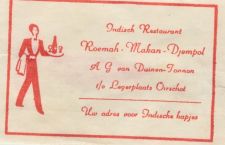 Indisch Restaurant
Roemah - Makan - Djempol
A. G. van Duinen-Tonnon
t/o Legerplaats Oirschot
Uw adres voor Indische hapjes